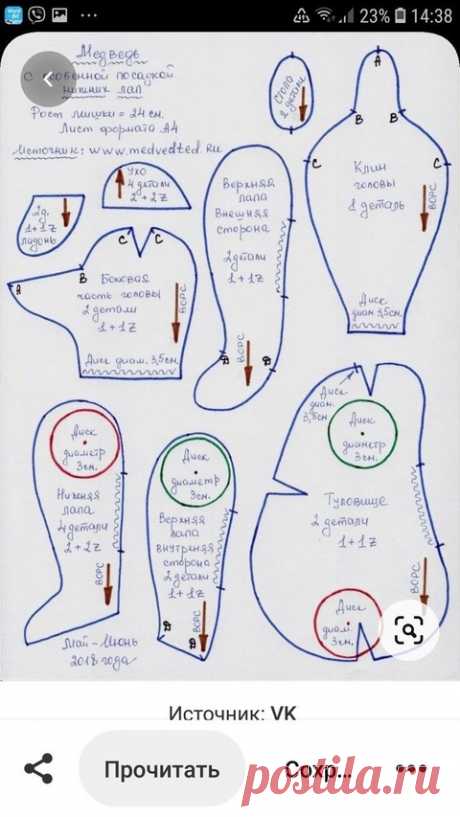 23% 14:38
Медведь
с особенной посадкой
нижних лап
Рост мишки = 24 см.
Лист формата А4
Источник: www.medvedted.ru
Стопа
2 детали
А
В В
С С
Клин
головы
1 деталь
ВОРС
Диск
диам 3,5см.
Ухо
4 детали
2 + 2Z
2д.
1+1Z
ладонь
Верхняя
лапа
Внешняя
сторона
2 детали
1+1Z
ВОРС
D D
С С
А
В
Боковая
часть головы
2 детали
1+1Z
ВОРС
Диск диам. 3,5см.
Диск
диаметр
3см.
Нижняя
лапа
4 детали
2+2Z
ВОРС
Диск
диаметр
3см.
Верхняя
лапа
внутренняя
сторона
2 детали
1+1Z
ВОРС
D D
Диск
диам.
3,5см.
Диск
диаметр
3см.
Туловище
2 детали
1+1Z
ВОРС
Диск
диам.
3см.
Май-Июнь
2018 года
Источник: VK
Прочитать
Сохр...
postila.ru